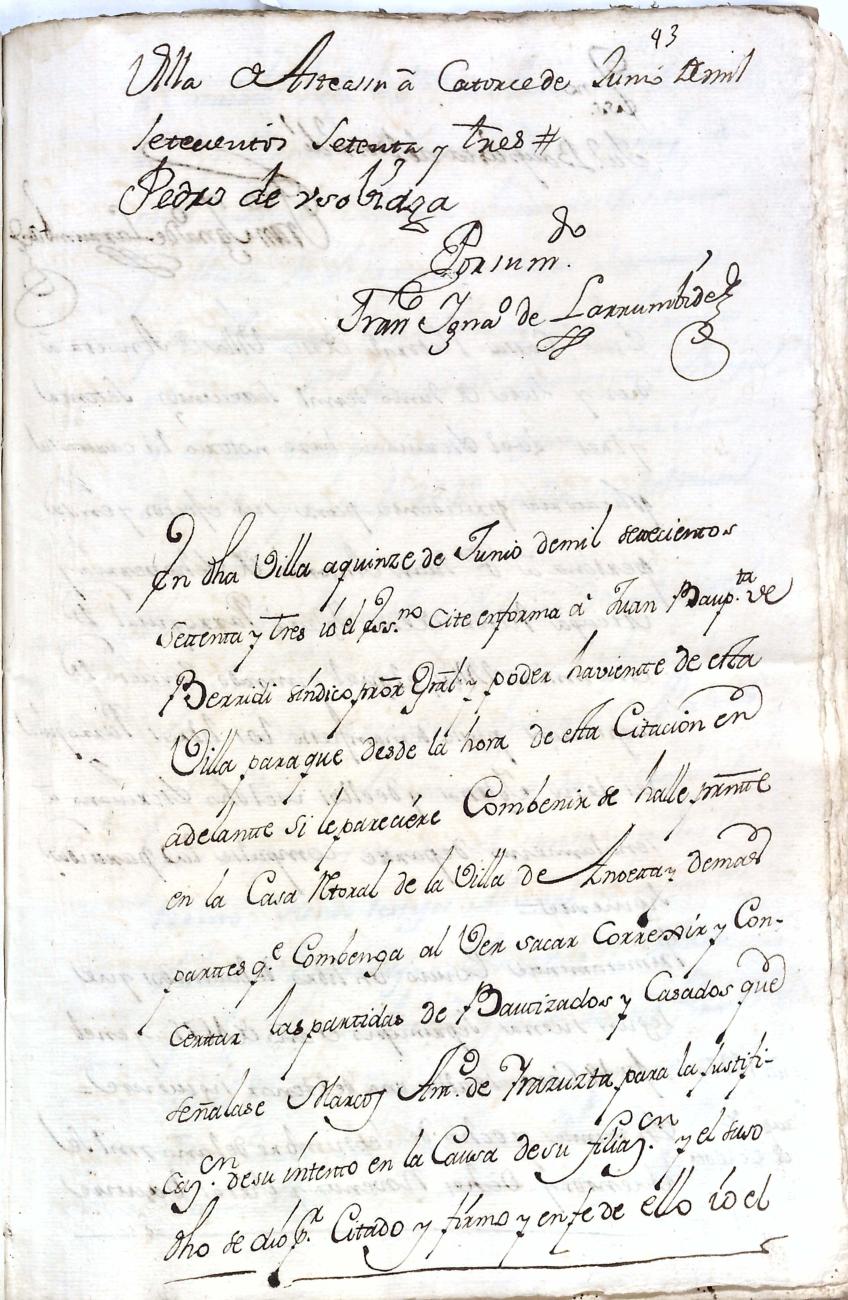 43
Villa de Asteasu à Catorce de Junio de mil
setecientos setenta y tres #
Pedro de Vsobiaga
Por su m.do
Fran.co Igna.o de Larrumbide
En dha Villa a quinze de Junio de mil setecientos
settenta y tres ió el Ess.no Cite en forma à Juan Baup.ta de
Berridi síndico pror Gral y poder haviente de esta
Villa para que desde la hora de esta Citacion en
adelantte si le pareciére Combenir se halle presntte
en la Casa Rtoral de la Villa de Anoeta y demas
parttes q.e Combenga al Ver sacar Correxir y Con-
certtar las partidas de Bautizados y Casados que
señalase Marcos Ant.o de Irazuzta para la Justifi-
cas.cn de su intento en la Causa de su filias.cn y el suso
dho se dió p.r Citado y firmo y en fe de ello ió el